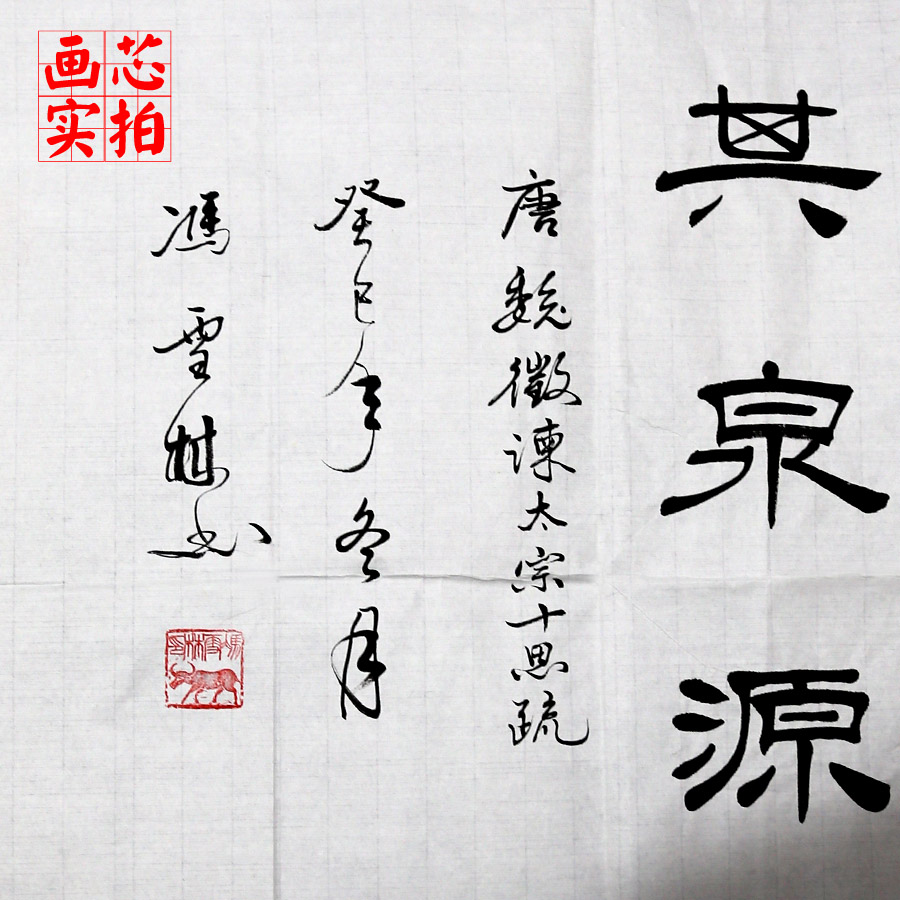 画芯
实拍
其泉源
唐魏徵諫太宗十思疏
癸巳年冬月
馮雪林书
馮雪林印